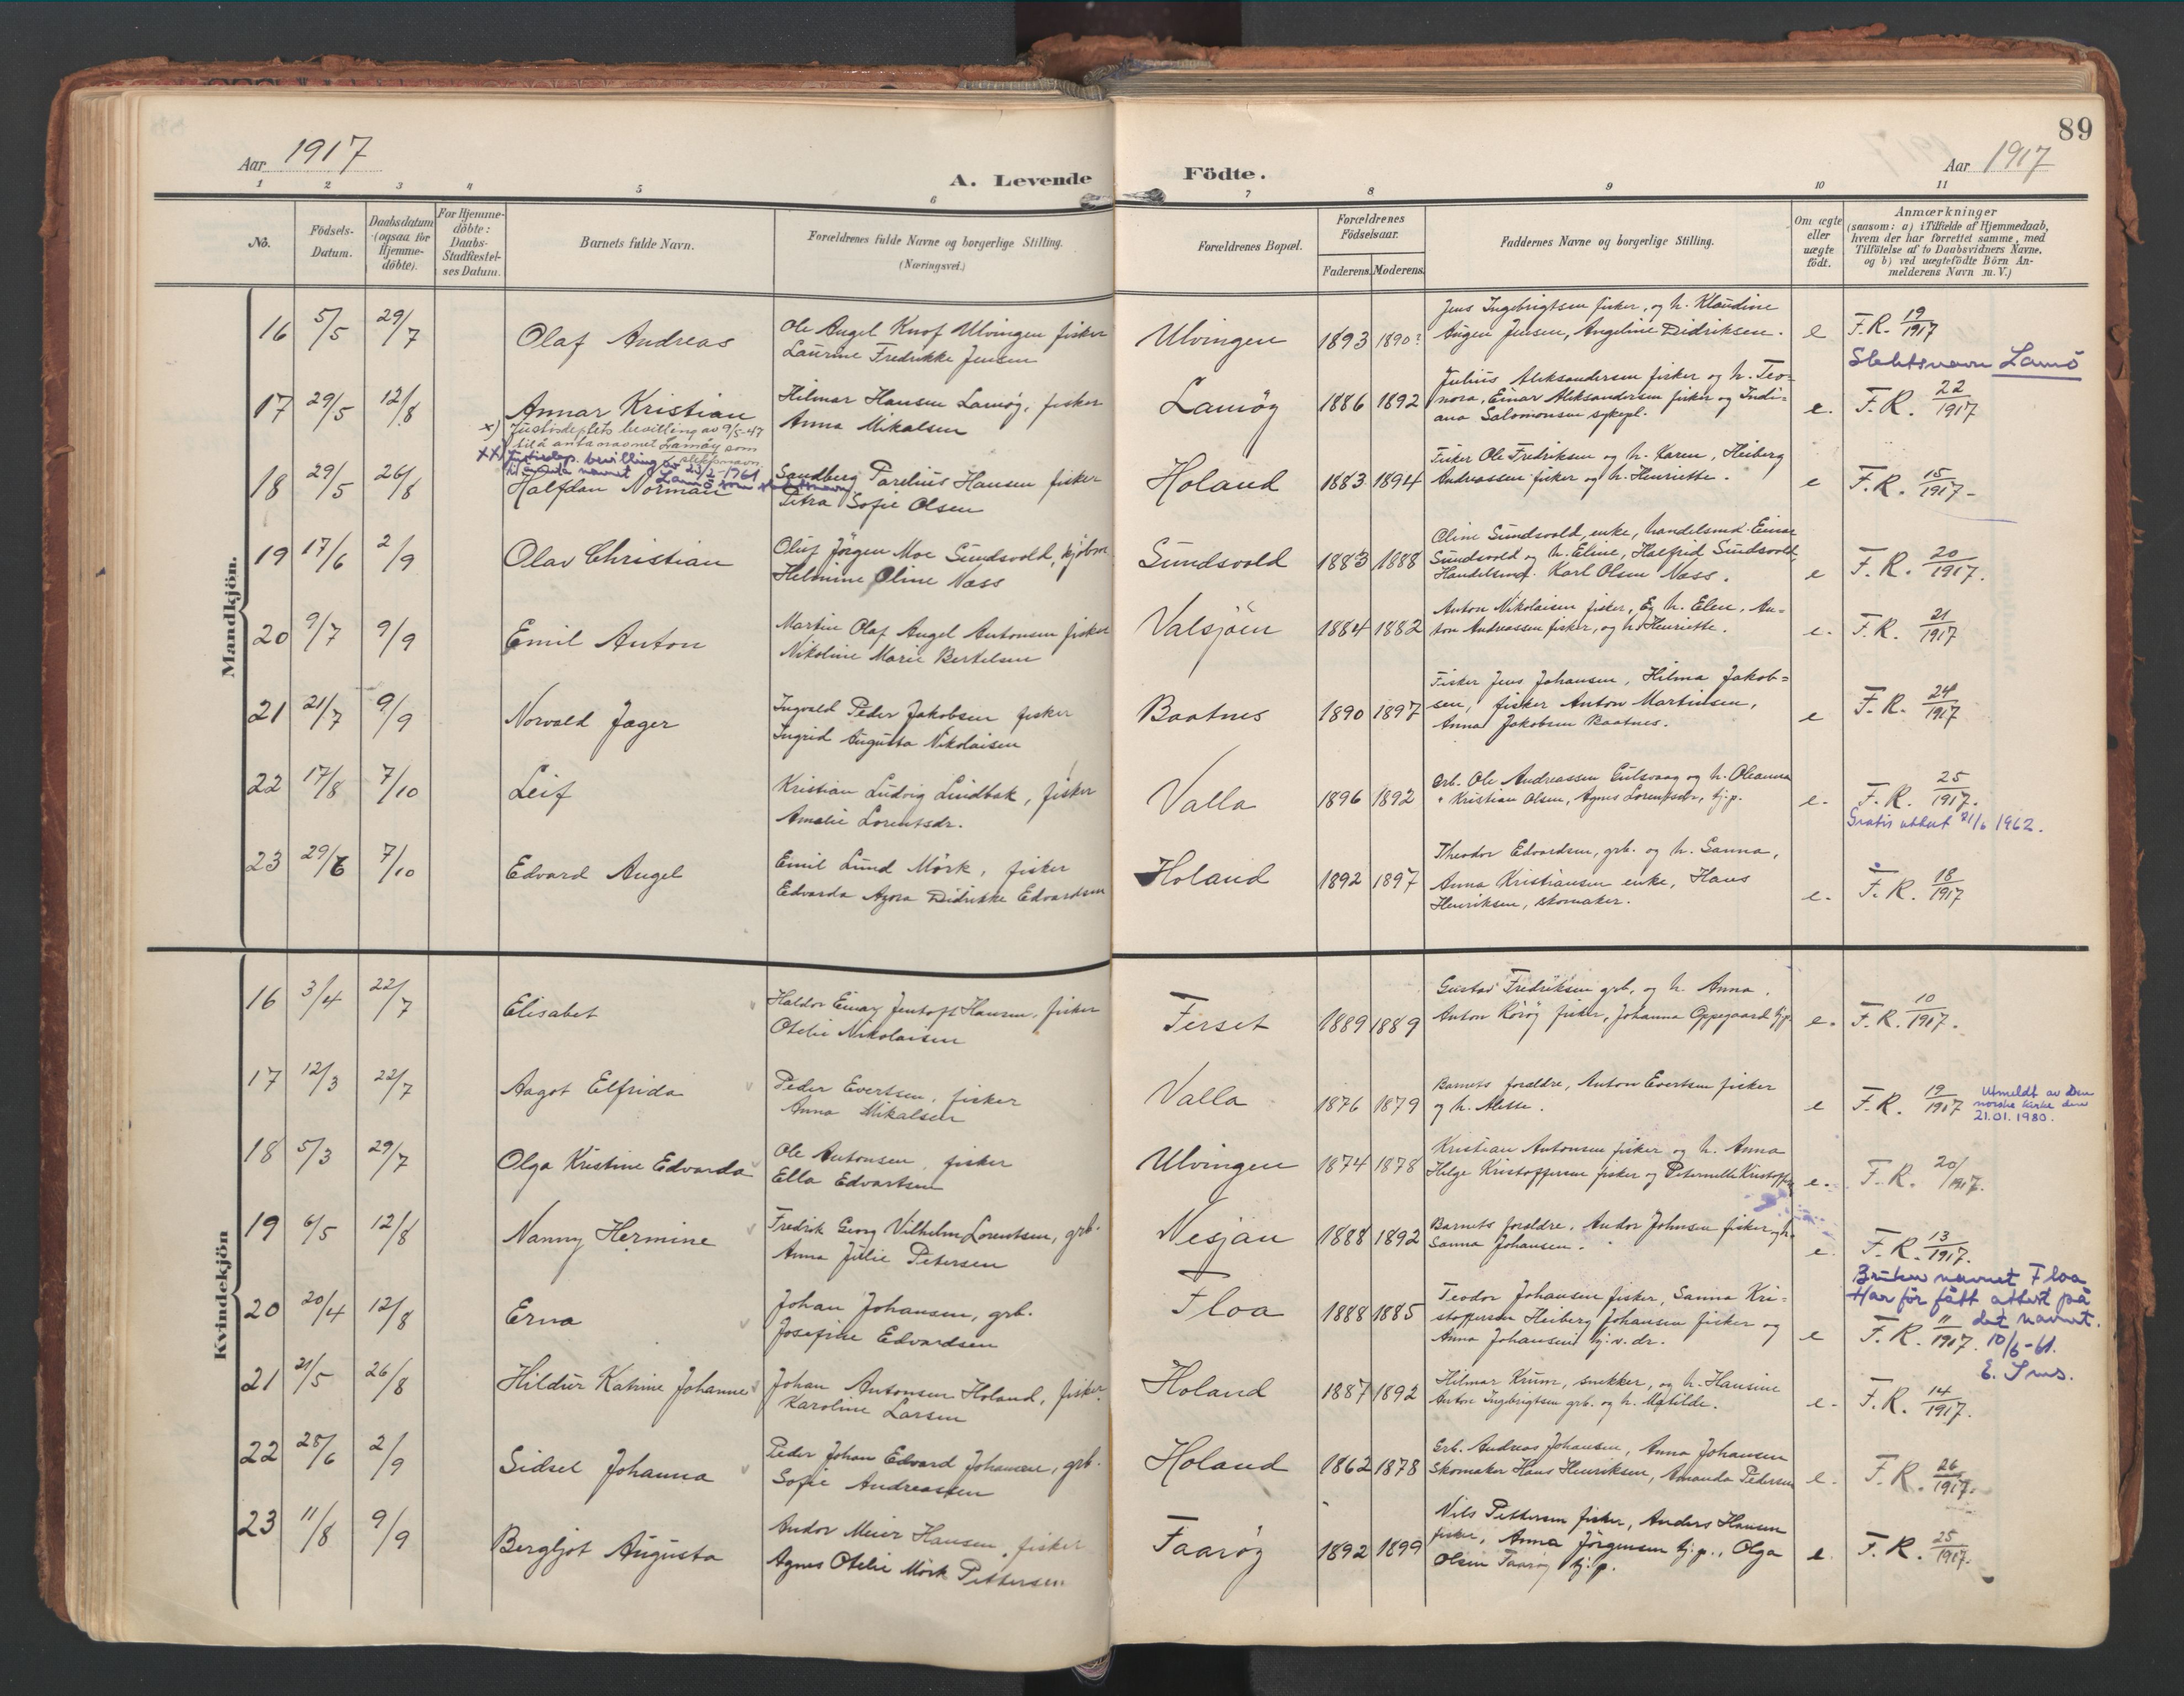 89
Aar 1917
A. Levende Födte.
Aar 1917
1 2 3 4 5 6 7 8 9 10 11
No.
Födsels-Datum.
Daabsdatum (ogsaa for Hjemme-döbte).
For Hjemme-döbte: Daabs-Stadfæstel-ses Datum.
Barnets fulde Navn.
Forældrenes fulde Navne og borgerlige Stilling.
(Næringsvei.)
Forældrenes Bopæl.
Forældrenes Födselsaar.
Faderens. Moderens.
Faddernes Navne og borgerlige Stilling.
Om ægte eller uægte födt.
Anmærkninger
(saasom: a) i Tilfælde af Hjemmedaab,
hvem der har forrettet samme, med
Tilföielse af to Daabsvidners Navne,
og b) ved uægtefödte Börn An-
melderens Navn m. V.)
Mandkjön.
16 5/5 29/7 Olaf Andreas
Ole Angel Knof Ulvingen fisker
Laurine Fredrikke Jensen
Ulvingen 1893 1890?
Jens Ingebrigtsen fisker, og h. Klaudine
Augen Jensen, Angeline Didriksen.
e F.R. 19/1917
Slektsnavn Lamö
17 29/5 12/8 Annar Kristian
x) Justisdeptets bevilling av 9/5-47
til å anta navnet Lamöy som
slektsnavn
xx) Justisdep. bevilling av 23/2-1961
til å anta navnet Lamö som slektsnavn
Hilmar Hansen Lamöy, fisker
Anna Mikalsen
Lamöy 1886 1892
Julius Aleksandersen fisker og h. Teo-
nora, Einar Aleksandersen fisker og Indi-
ana Salomonsen sykepl.
e. F.R. 22/1917
18 29/5 26/8 Halfdan Norman
Sandberg Parelius Hansen fisker
Petra Sofie Olsen
Holand 1883 1894
Fisker Ole Fredriksen og h. Karen, Heiberg
Andreassen fisker og h. Henriette.
e F.R. 15/1917-
19 17/6 2/9 Olav Christian
Oluf Jörgen Moe Sundsvold, kjöbm.
Helmine Oline Næss
Sundsvold 1883 1888
Oline Sundsvold, enke, handelsmd. Einar
Sundsvold og h. Eline, Halfrid Sundsvold,
Handelsmd. Karl Olsen Næss.
e F.R. 20/1917.
20 9/7 9/9 Emil Anton
Martin Olaf Angel Antonsen fisker
Nikoline Marie Bertelsen
Valsjöen 1884 1882
Anton Nikolaisen fisker, Eg h. Elen, An-
ton Andreassen fisker, og h. Henriette.
e. F.R. 21/1917
21 21/7 9/9 Norvald Jager
Ingvald Peder Jakobsen fisker
Ingrid Augusta Nikolaisen
Baatnes 1890 1897
Fisker Jens Johansen, Hilma Jakob-
sen, fisker Anton Martinsen,
Anna Jakobsen Baatnes.
e F.R. 24/1917
22 17/8 7/10 Leif
Kristian Ludvig Lindbak, fisker
Amalie Lorentsdr.
Valla 1896 1892
Grb. Ole Andreassen Gulsvaag og h. Oleanna
" Kristian Olsen, Agnes Lorentsen, tj.p.
e. F.R. 25/1917.
Gratis attest 21/6 1962.
23 29/6 7/10 Edvard Angel
Emil Lund Mörk, fisker
Edvarda Agora Didrikke Edvardsen
Holand 1892 1897
Theodor Edvardsen, grb. og h. Sanna,
Anna Kristiansen enke, Hans
Henriksen, skomaker.
e. F.R. 18/1917
Kvindekjön
16 3/4 22/7 Elisabet
Haldor Einar Jentoft Hansen, fisker
Otelie Nikolaisen
Forset 1889 1889
Gustav Fredriksen grb. og h. Anna.
Anton Röröy fisker, Johanna Oppegaard tj.p.
e. F.R. 10/1917.
17 12/3 22/7 Aagot Elfrida
Peder Evertsen, fisker
Anna Mikalsen
Valla 1876 1879
Barnets forældre, Anton Evertsen fisker
og h. Alette.
e F.R. 19/1917
Utmeldt av Den
norske kirke den
21.01.1980.
18 5/3 29/7 Olga Kristine Edvarda
Ole Antonsen, fisker
Ella Edvartsen
Ulvingen 1874 1878
Kristian Antonsen fisker og h. Anna
Helge Kristoffersen fisker og Peternille Kristoffers.
e. F.R. 20/1917.
19 6/5 12/8 Nanny Hermine
Fredrik Georg Vilhelm Lorentsen, grb.
Anna Julie Petersen
Nesjan 1888 1892
Barnets forældre, Andor Johnsen fisker og h.
Sanna Johansen.
e. F.R. 13/1917.
Bruker navnet Floa
Har för fått attest på
det navnet.
10/6-61.
20 20/4 12/8 Erna
Johan Johansen, grb.
Josefine Edvardsen
Floa 1888 1885
Teodor Johansen fisker, Sanna Kri-
stoffersen Heiberg Johansen fisker og
Anna Johansen tj.v. dr.
e F.R. 11/1917.
21 21/5 26/8 Hildur Katrine Johanne
Johan Antonsen Holand, fisker
Karoline Larsen
Holand 1887 1892
Hilmar Krum, snekker, og h. Hansine
Anton Ingbrigtsen grb. og h. Matilde.
e- F.R. 14/1917.
22 28/6 2/9 Sidsel Johanna
Peder Johan Edvard Johansen, grb.
Sofie Andreassen
Holand 1862 1878
Grb. Andreas Johansen, Anna Johansen
Skomaker Hans Henriksen, Amanda Pedersen
e. F.R. 26/1917.
23 11/8 9/9 Bergljot Augusta
Andor Meier Hansen, fisker
Agnes Otelie Mörk Pettersen
Faaröy 1892 1899
Nils Pettersen fisker, Anders Hansen
fisker, Anna Jörgensen tj.p., Olga
Olsen Faaröy tj.p.
e. F.R. 25/1917.